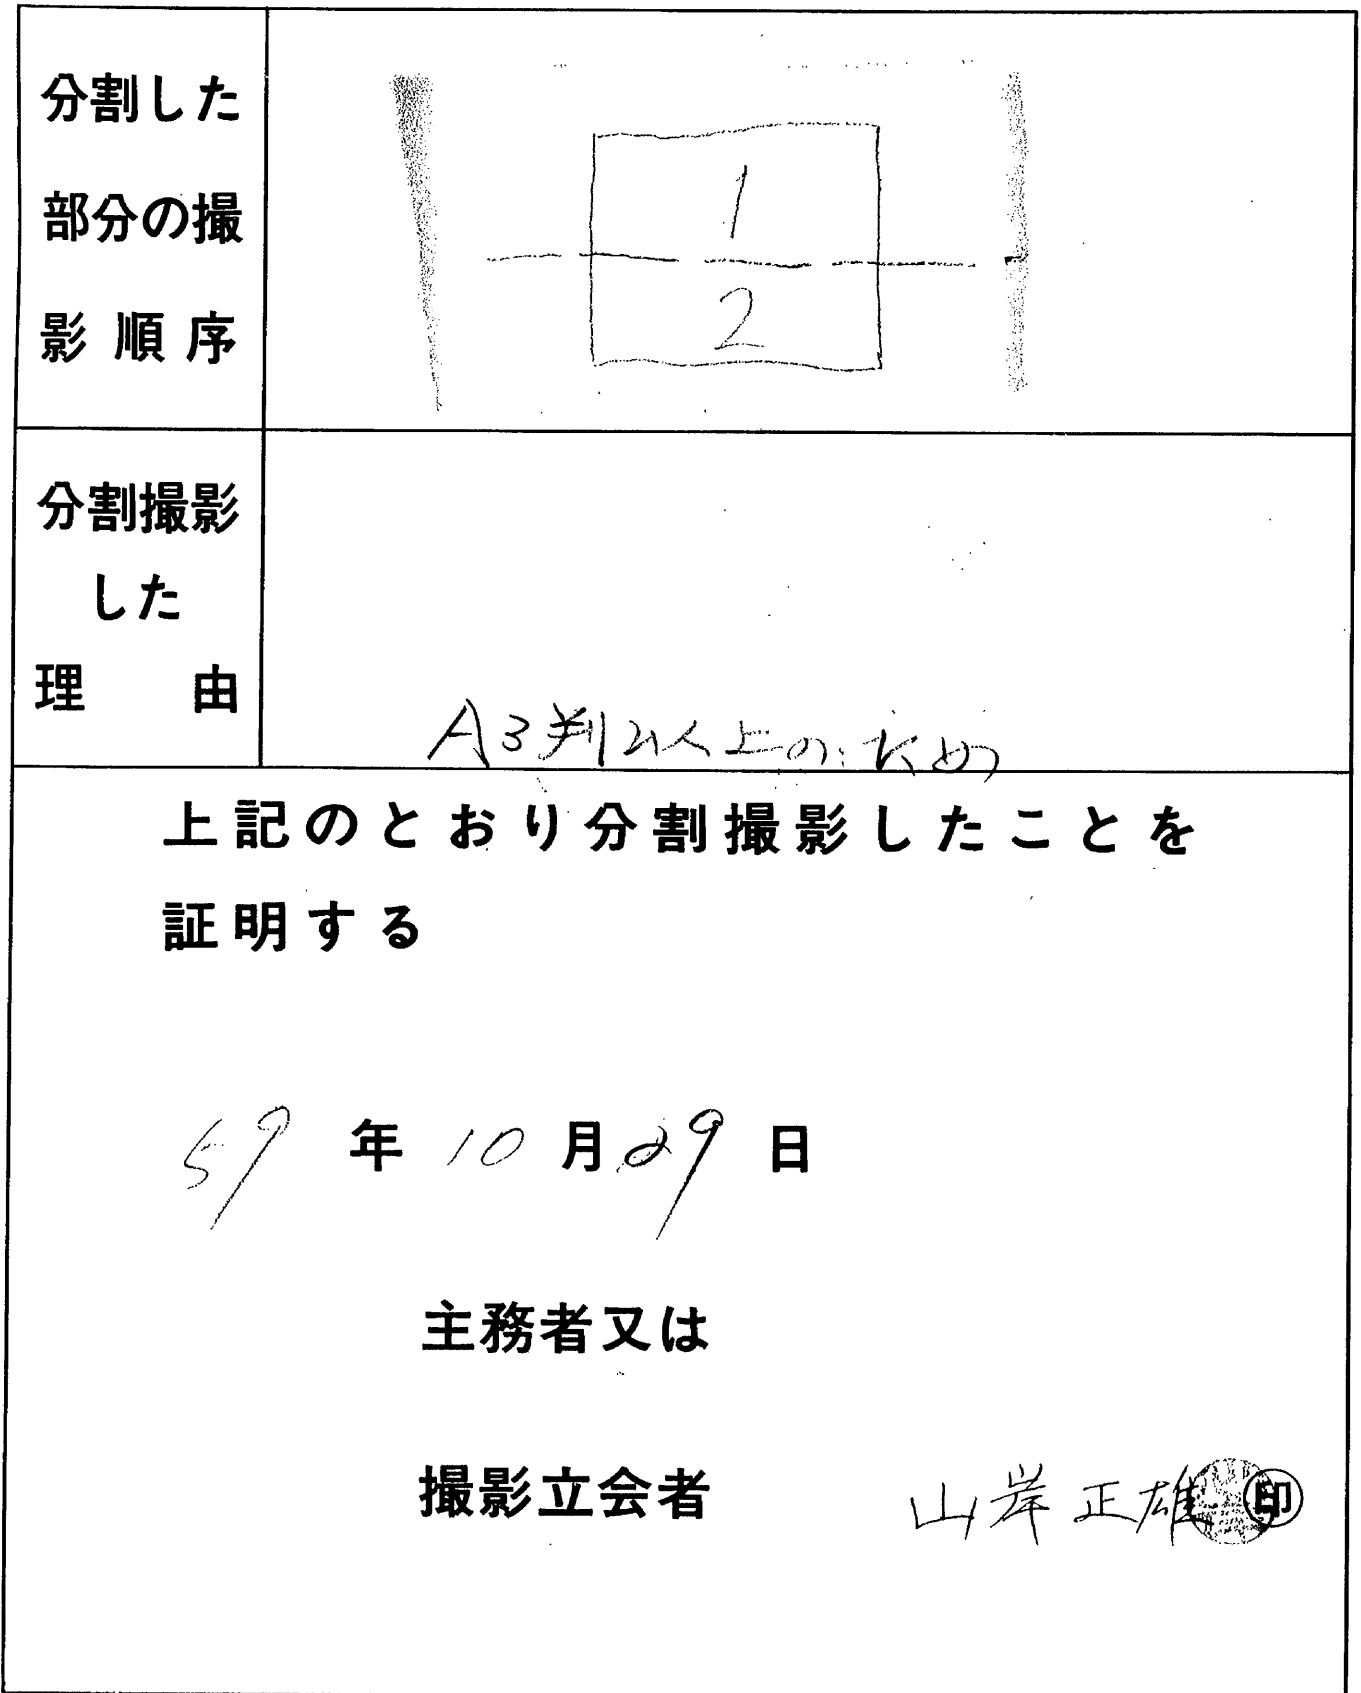 分割した
部分の撮
影順序
1
2
分割撮影
した
理由
A3判以上のため
上記のとおり分割撮影したことを
証明する
59年10月29日
主務者又は
撮影立会者 山岸正雄 印